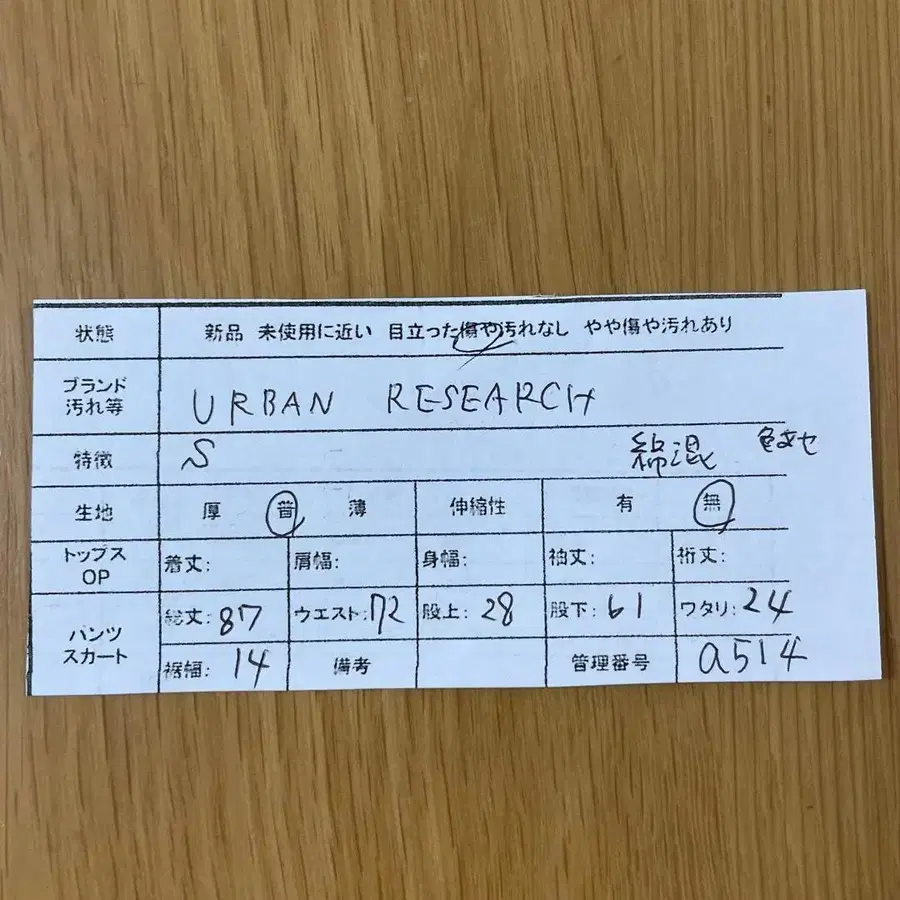 状態 新品 未使用に近い 目立った傷や汚れなし やや傷や汚れあり
ブランド
汚れ等 URBAN RESEARCH
特徴 S 綿混
生地 厚 普 薄 伸縮性 有 無
トップス
OP 着丈: 肩幅: 身幅: 袖丈: 裄丈:
パンツ
スカート 総丈:87 ウエスト:72 股上:28 股下:61 ワタリ:24
裾幅:14 備考 管理番号 a514